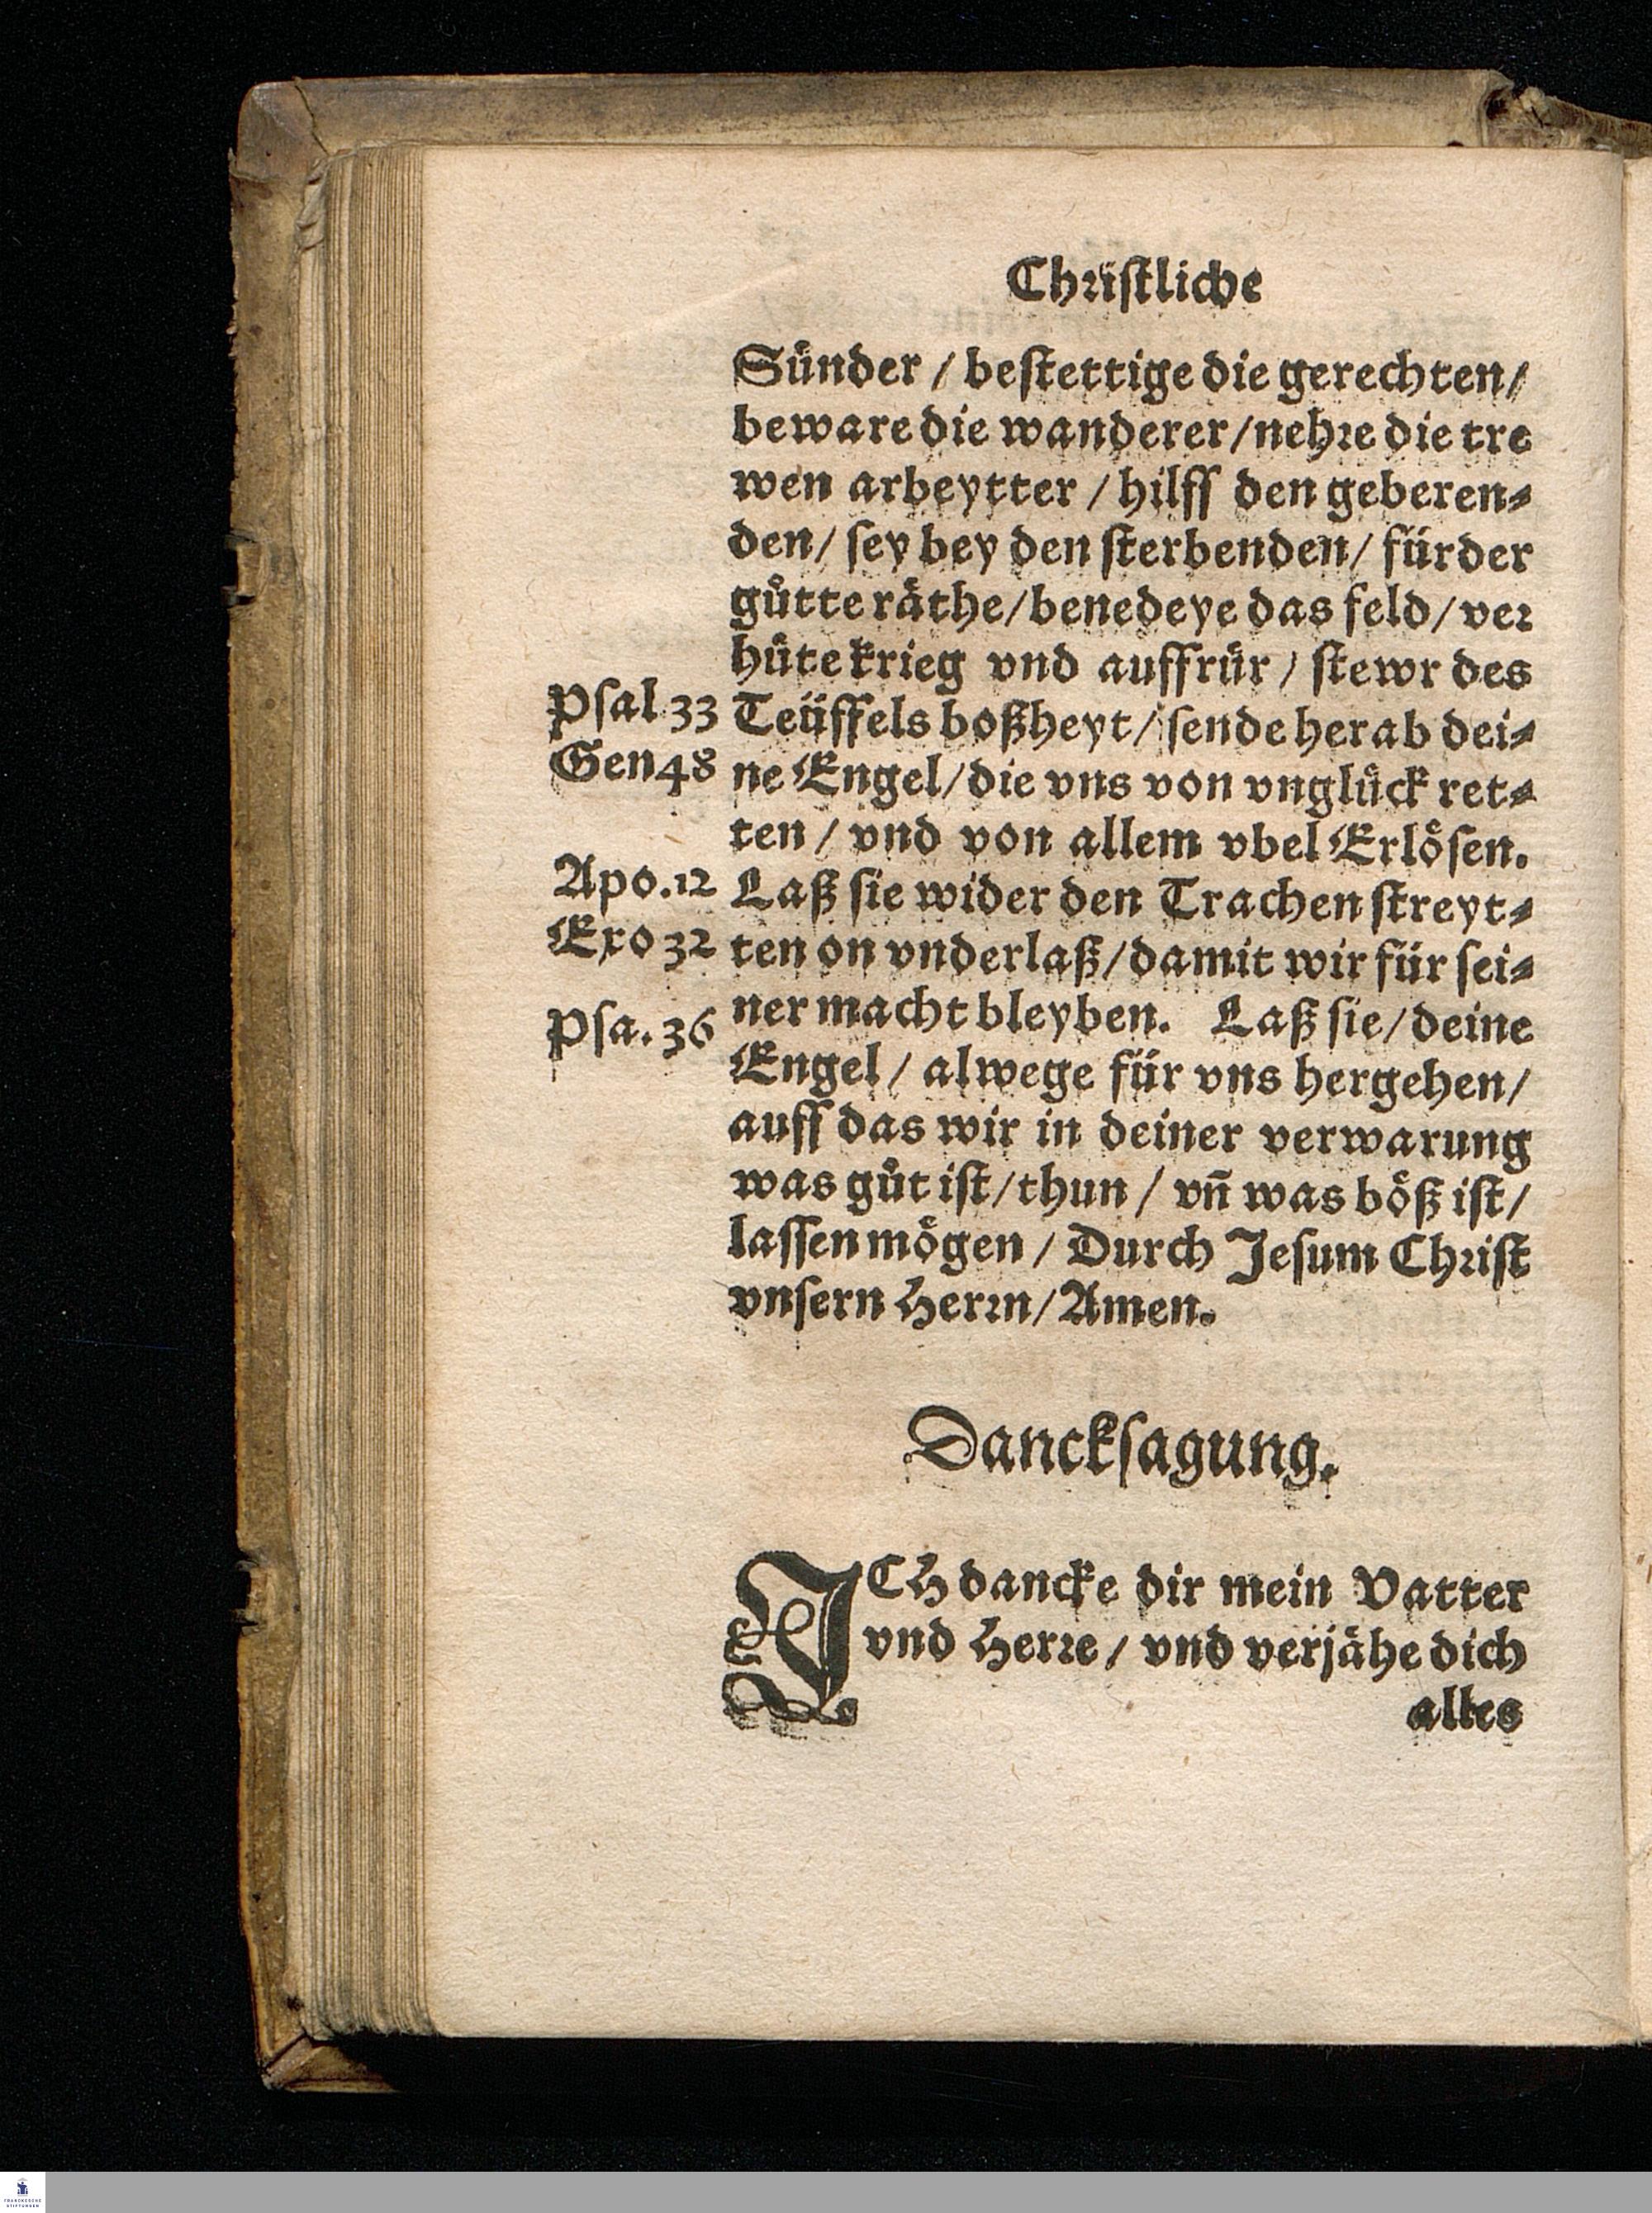 Christliche
Sünder / bestettige die gerechten/
beware die wanderer/nehre die tre
wen arbeytter / hilff den geberen⸗
den/ sey bey den sterbenden/ fürder
gůtte räthe/benedeye das feld/ver
hüte krieg vnd auffrůr / stewr des
Psal 33
Teüffels boßheyt/ sende herab dei⸗
Gen 48
ne Engel/die vns von vnglück ret⸗
ten / vnd von allem vbel Erlösen.
Apo.12
Laß sie wider den Trachen streyt⸗
Exo 32
ten on vnderlaß/damit wir für sei⸗
Psa. 36
ner macht bleyben. Laß sie/deine
Engel/ alwege für vns hergehen/
auff das wir in deiner verwarung
was gůt ist/thun / vñ was böß ist/
lassen mögen / Durch Jesum Christ
vnsern Herrn/Amen.
Dancksagung.
JCH dancke dir mein Vatter
vnd Herre / vnd verjähe dich
alles
FRANCKESCHE
STIFTUNGEN